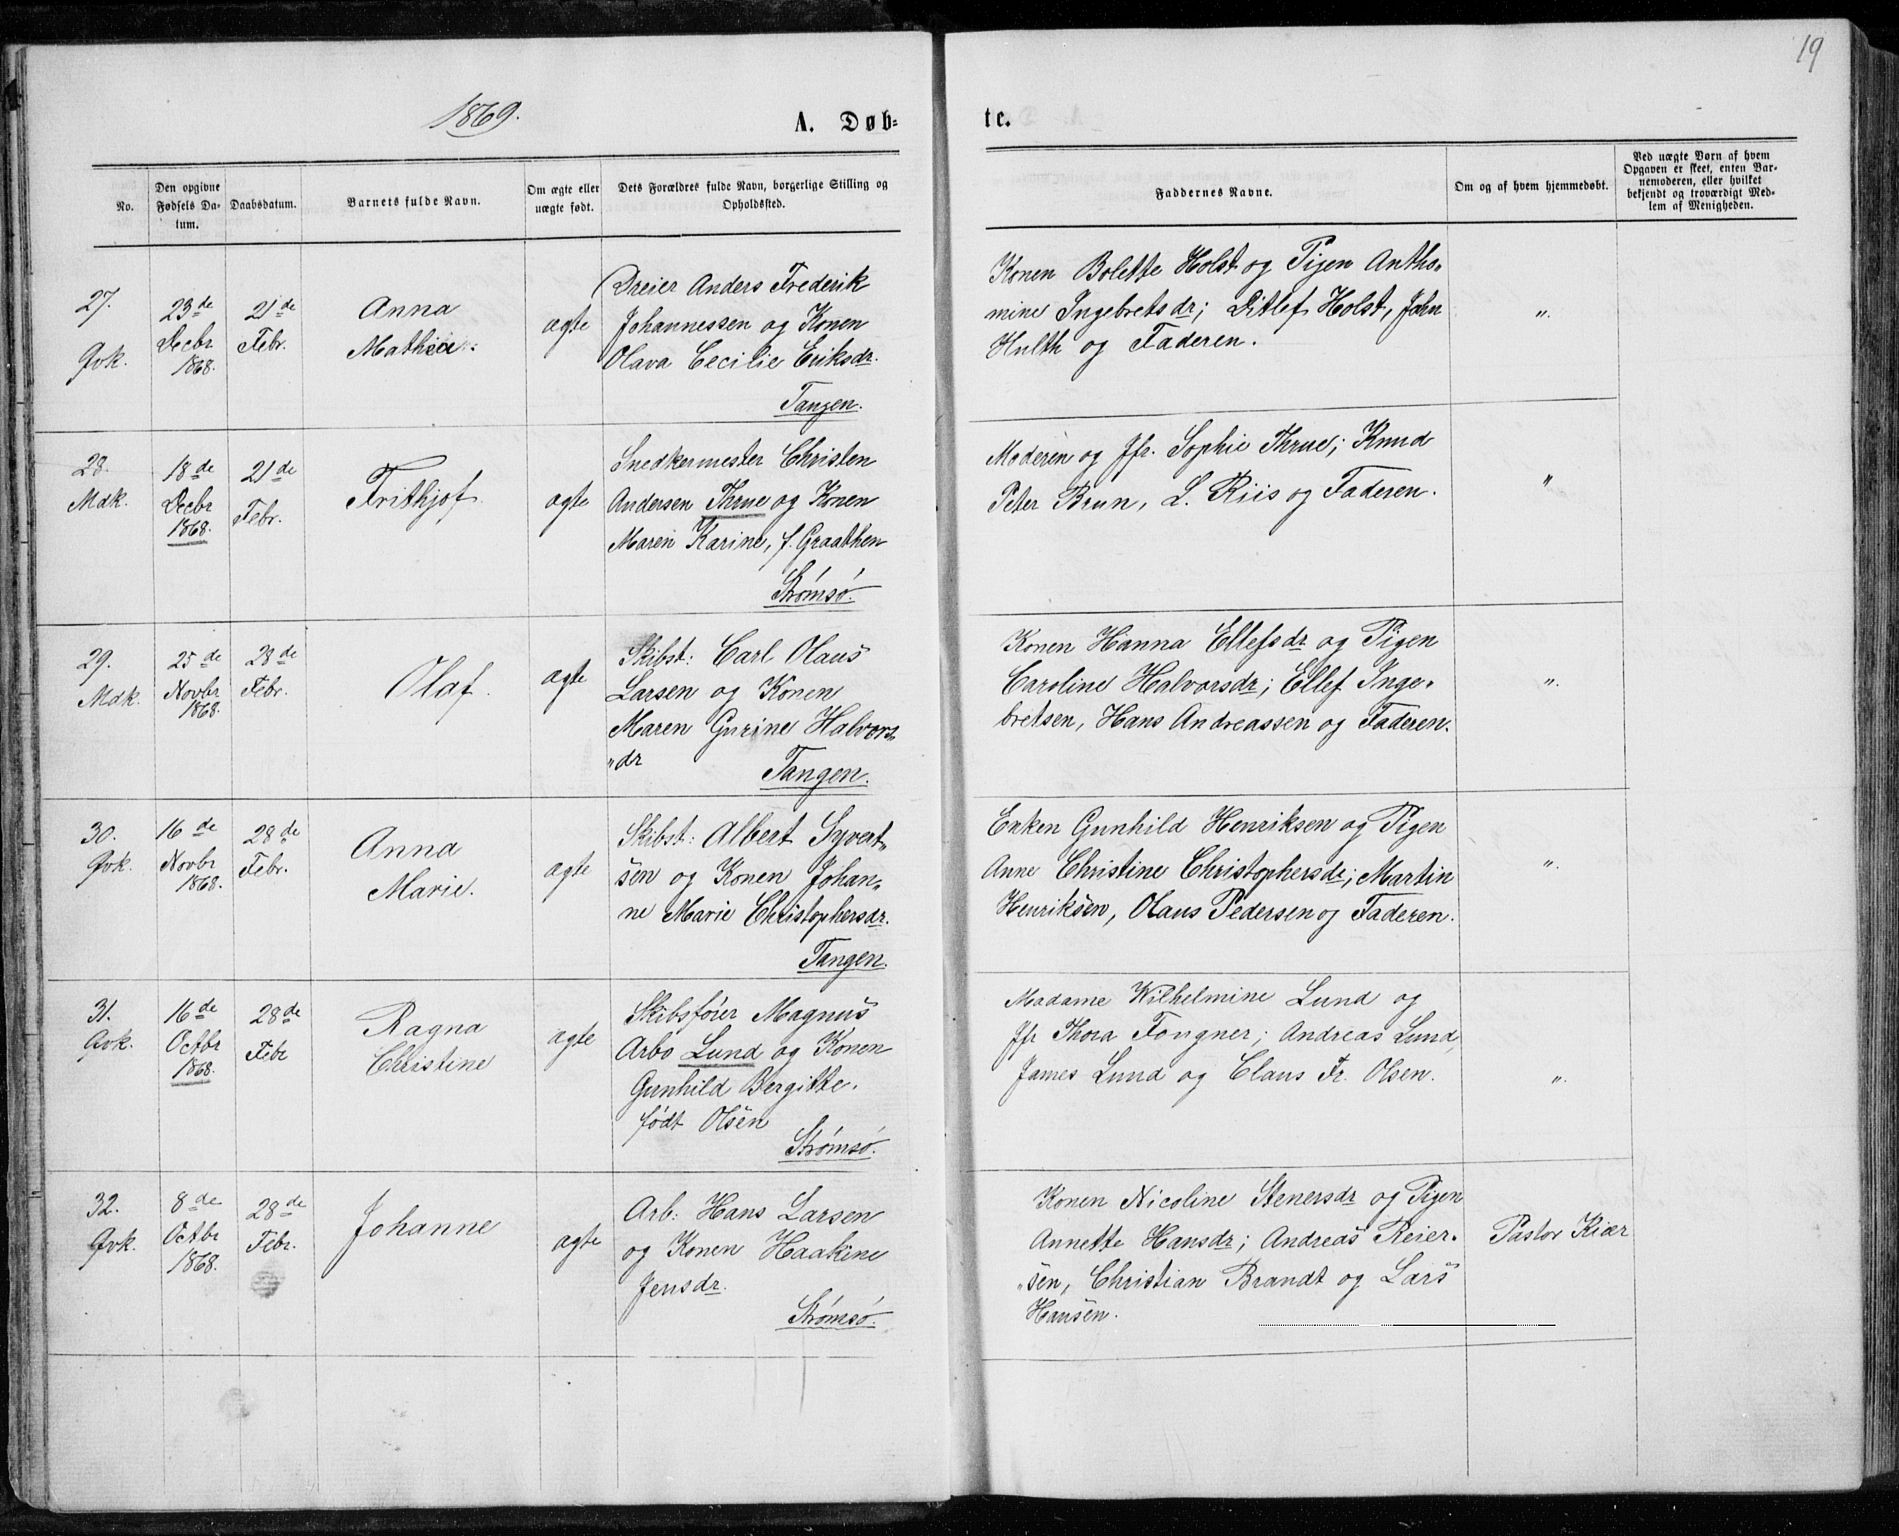 19
1869.
A. Døb-
te.
No.
Den opgivne Fødsels Datum.
Daabsdatum.
Barnets fulde Navn.
Om ægte eller uægte født.
Dets Forældres fulde Navn, borgerlige Stilling og Opholdssted.
Faddernes Navne.
Om og af hvem hjemmedøbt.
Ved uægte Børn af hvem Opgaven er skeet, enten Barnemoderen, eller hvilket bekjendt og troværdigt Medlem af Menigheden.
27.
Qvk.
23de
Decbr
1868.
21de
Febr.
Anna
Mathea.
ægte
Dreier Anders Frederik
Johannessen og Konen
Olava Cecilie Eriksdr.
Tangen.
Konen Bolette Holst og Pigen Antho-
mine Ingebretsdr; Ditlef Holst, John
Hulth og Faderen.
"
28.
Mdk.
18de
Decbr
1868.
21de
Febr.
Frithjof
ægte
Snedkermester Christen
Andersen Thrue og Konen
Maren Karine, f. Graathen
Strømsø.
Moderen og Jfr. Sophie Thrue; Knud
Peter Brun, L. Riis og Faderen.
"
29.
Mdk.
25de
Novbr
1868.
28de
Febr.
Olaf.
ægte
Skibst: Carl Olaus
Larsen og Konen
Maren Gurine Halvors-
"dr
Tangen.
Konen Hanna Ellefsdr og Pigen
Caroline Halvorsdr; Ellef Inge-
bretsen, Hans Andreassen og Faderen.
".
30.
Qvk.
16de
Novbr
1868.
28de
Febr.
Anna
Marie.
ægte
Skibst: Albert Syvert-
sen og Konen Johan-
ne Marie Christophersdr.
Tangen.
Enken Gunhild Henriksen og Pigen
Anne Christine Christophersdr; Martin
Henriksen, Olaus Pedersen og Faderen.
".
31.
Qvk.
16de
Octbr
1868.
28de
Febr
Ragna
Christine
ægte
Skibsfører Magnus
Arbo Lund og Konen
Gunhild Bergitte.
født Olsen
Strømsø.
Madame Wilhelmine Lund og
Jfr Thora Fongner; Andreas Lund,
James Lund og Claus Fr. Olsen.
".
32.
Qvk.
8de
Octbr
1868.
28de
Febr.
Johanne
ægte
Arb: Hans Larsen
og Konen Haakine
Jensdr.
Strømsø.
Konen Nicoline Stenersdr og Pigen
Annette Hansdr; Andreas Reier-
"sen, Christian Brandt og Lars
Hansen.
Pastor Kiær